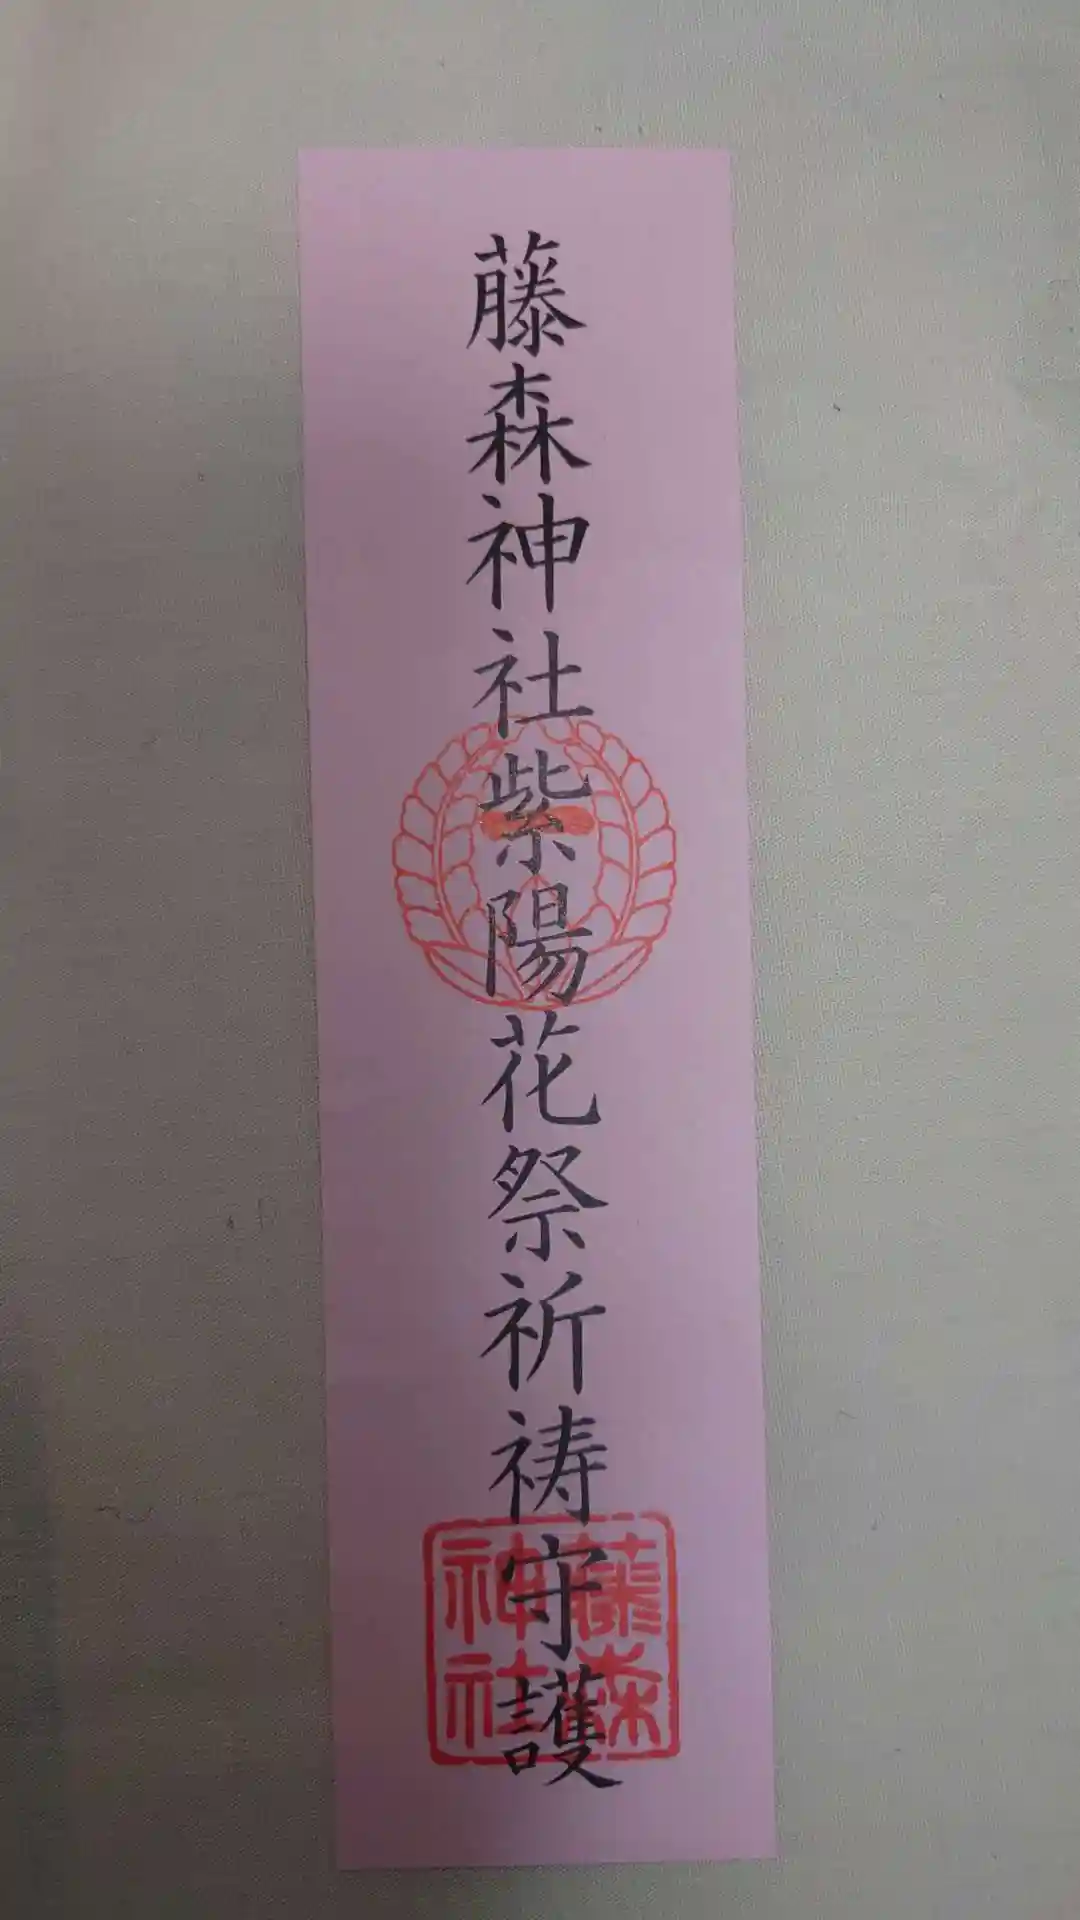 藤森神社紫陽花祭祈祷守護
藤森
神社